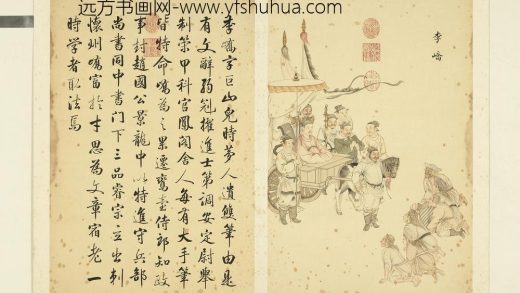 远方书画网：www.yfshuhua.com
李嶠
李嶠字巨山兒時夢人遺雙筆由是
有文辭弱冠擢進士第調安定尉舉
制策甲科官鳳閣舍人每有大手筆
皆特命嶠為之累遷鸞臺侍郎知政
事封趙國公景龍中以特進守兵部
尚書同中書門下三品睿宗立出刺
懷州嶠富於才思為文章宿老一
時學者取法焉